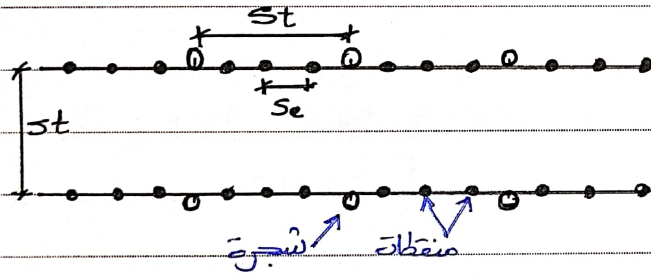 St
Se
st
شجرة
منقطات